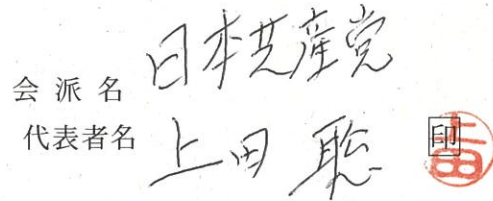 会派名 日本共産党
代表者名 上田 聡 印 上田